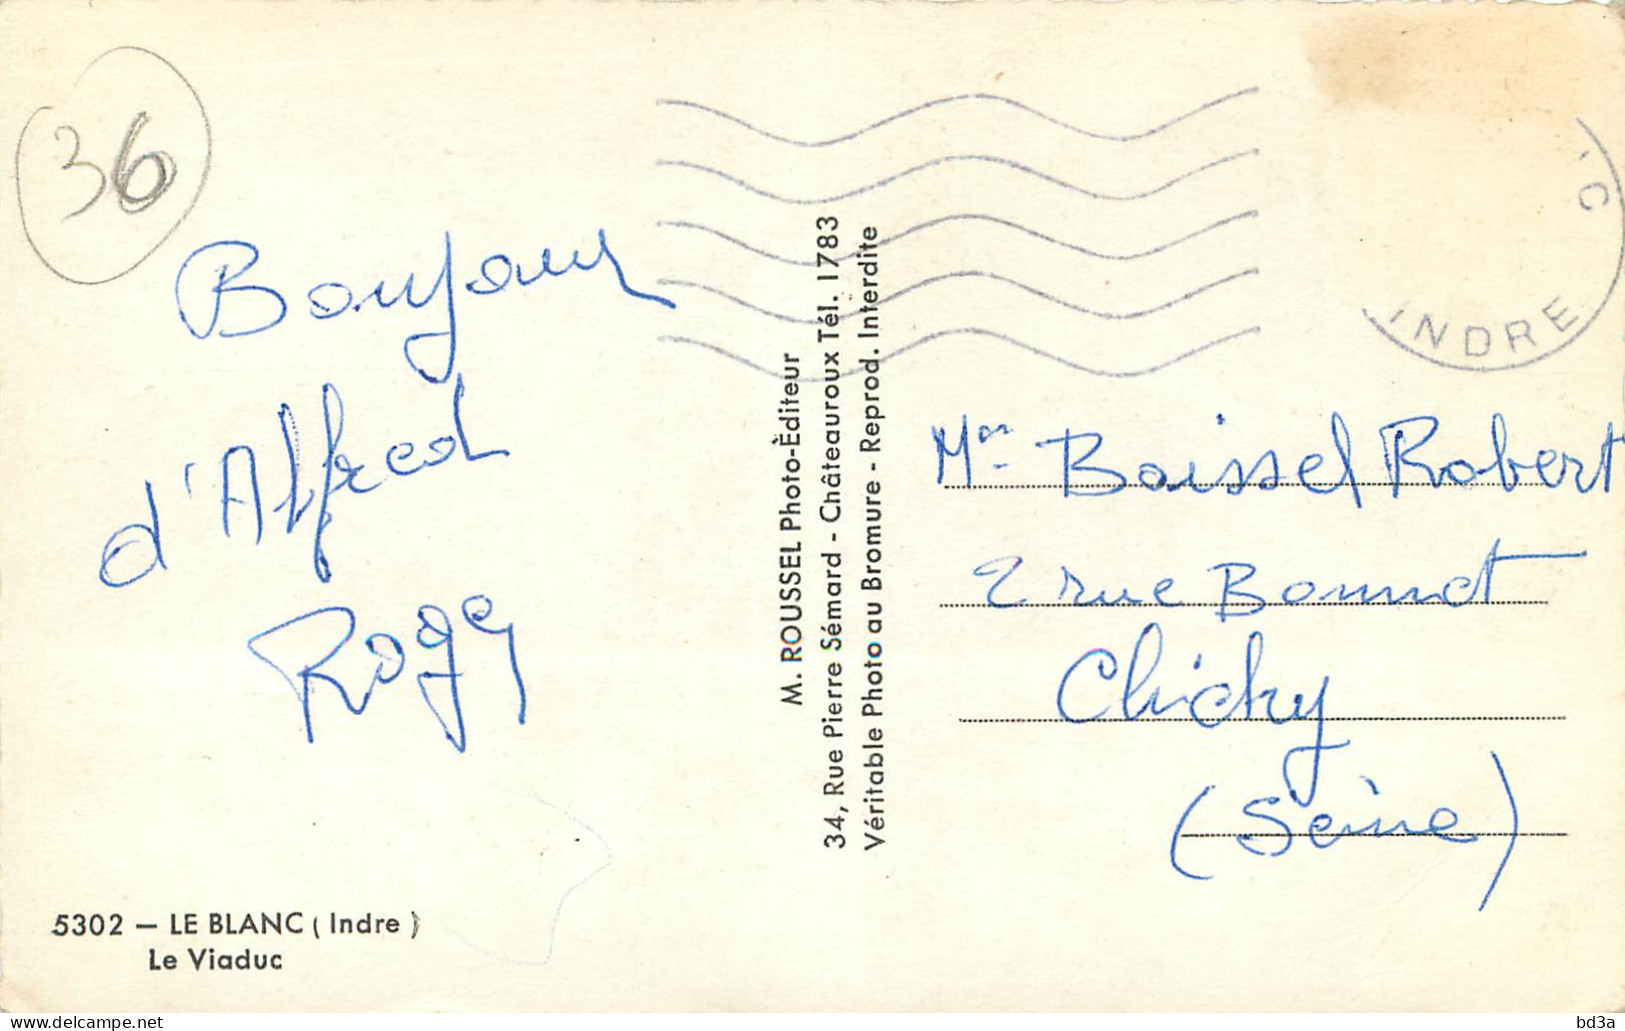 36
Bonjour
d'Alfred
Roger
5302 — LE BLANC ( Indre )
Le Viaduc
M. ROUSSEL Photo-Èditeur
34, Rue Pierre Sémard - Châteauroux Tél. 1783
Véritable Photo au Bromure - Reprod. Interdite
C
INDRE
Mr Boissel Robert
2 rue Bonnet
Clichy
(Seine)
bd3a